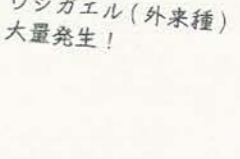 ウシガエル(外来種)
大量発生!